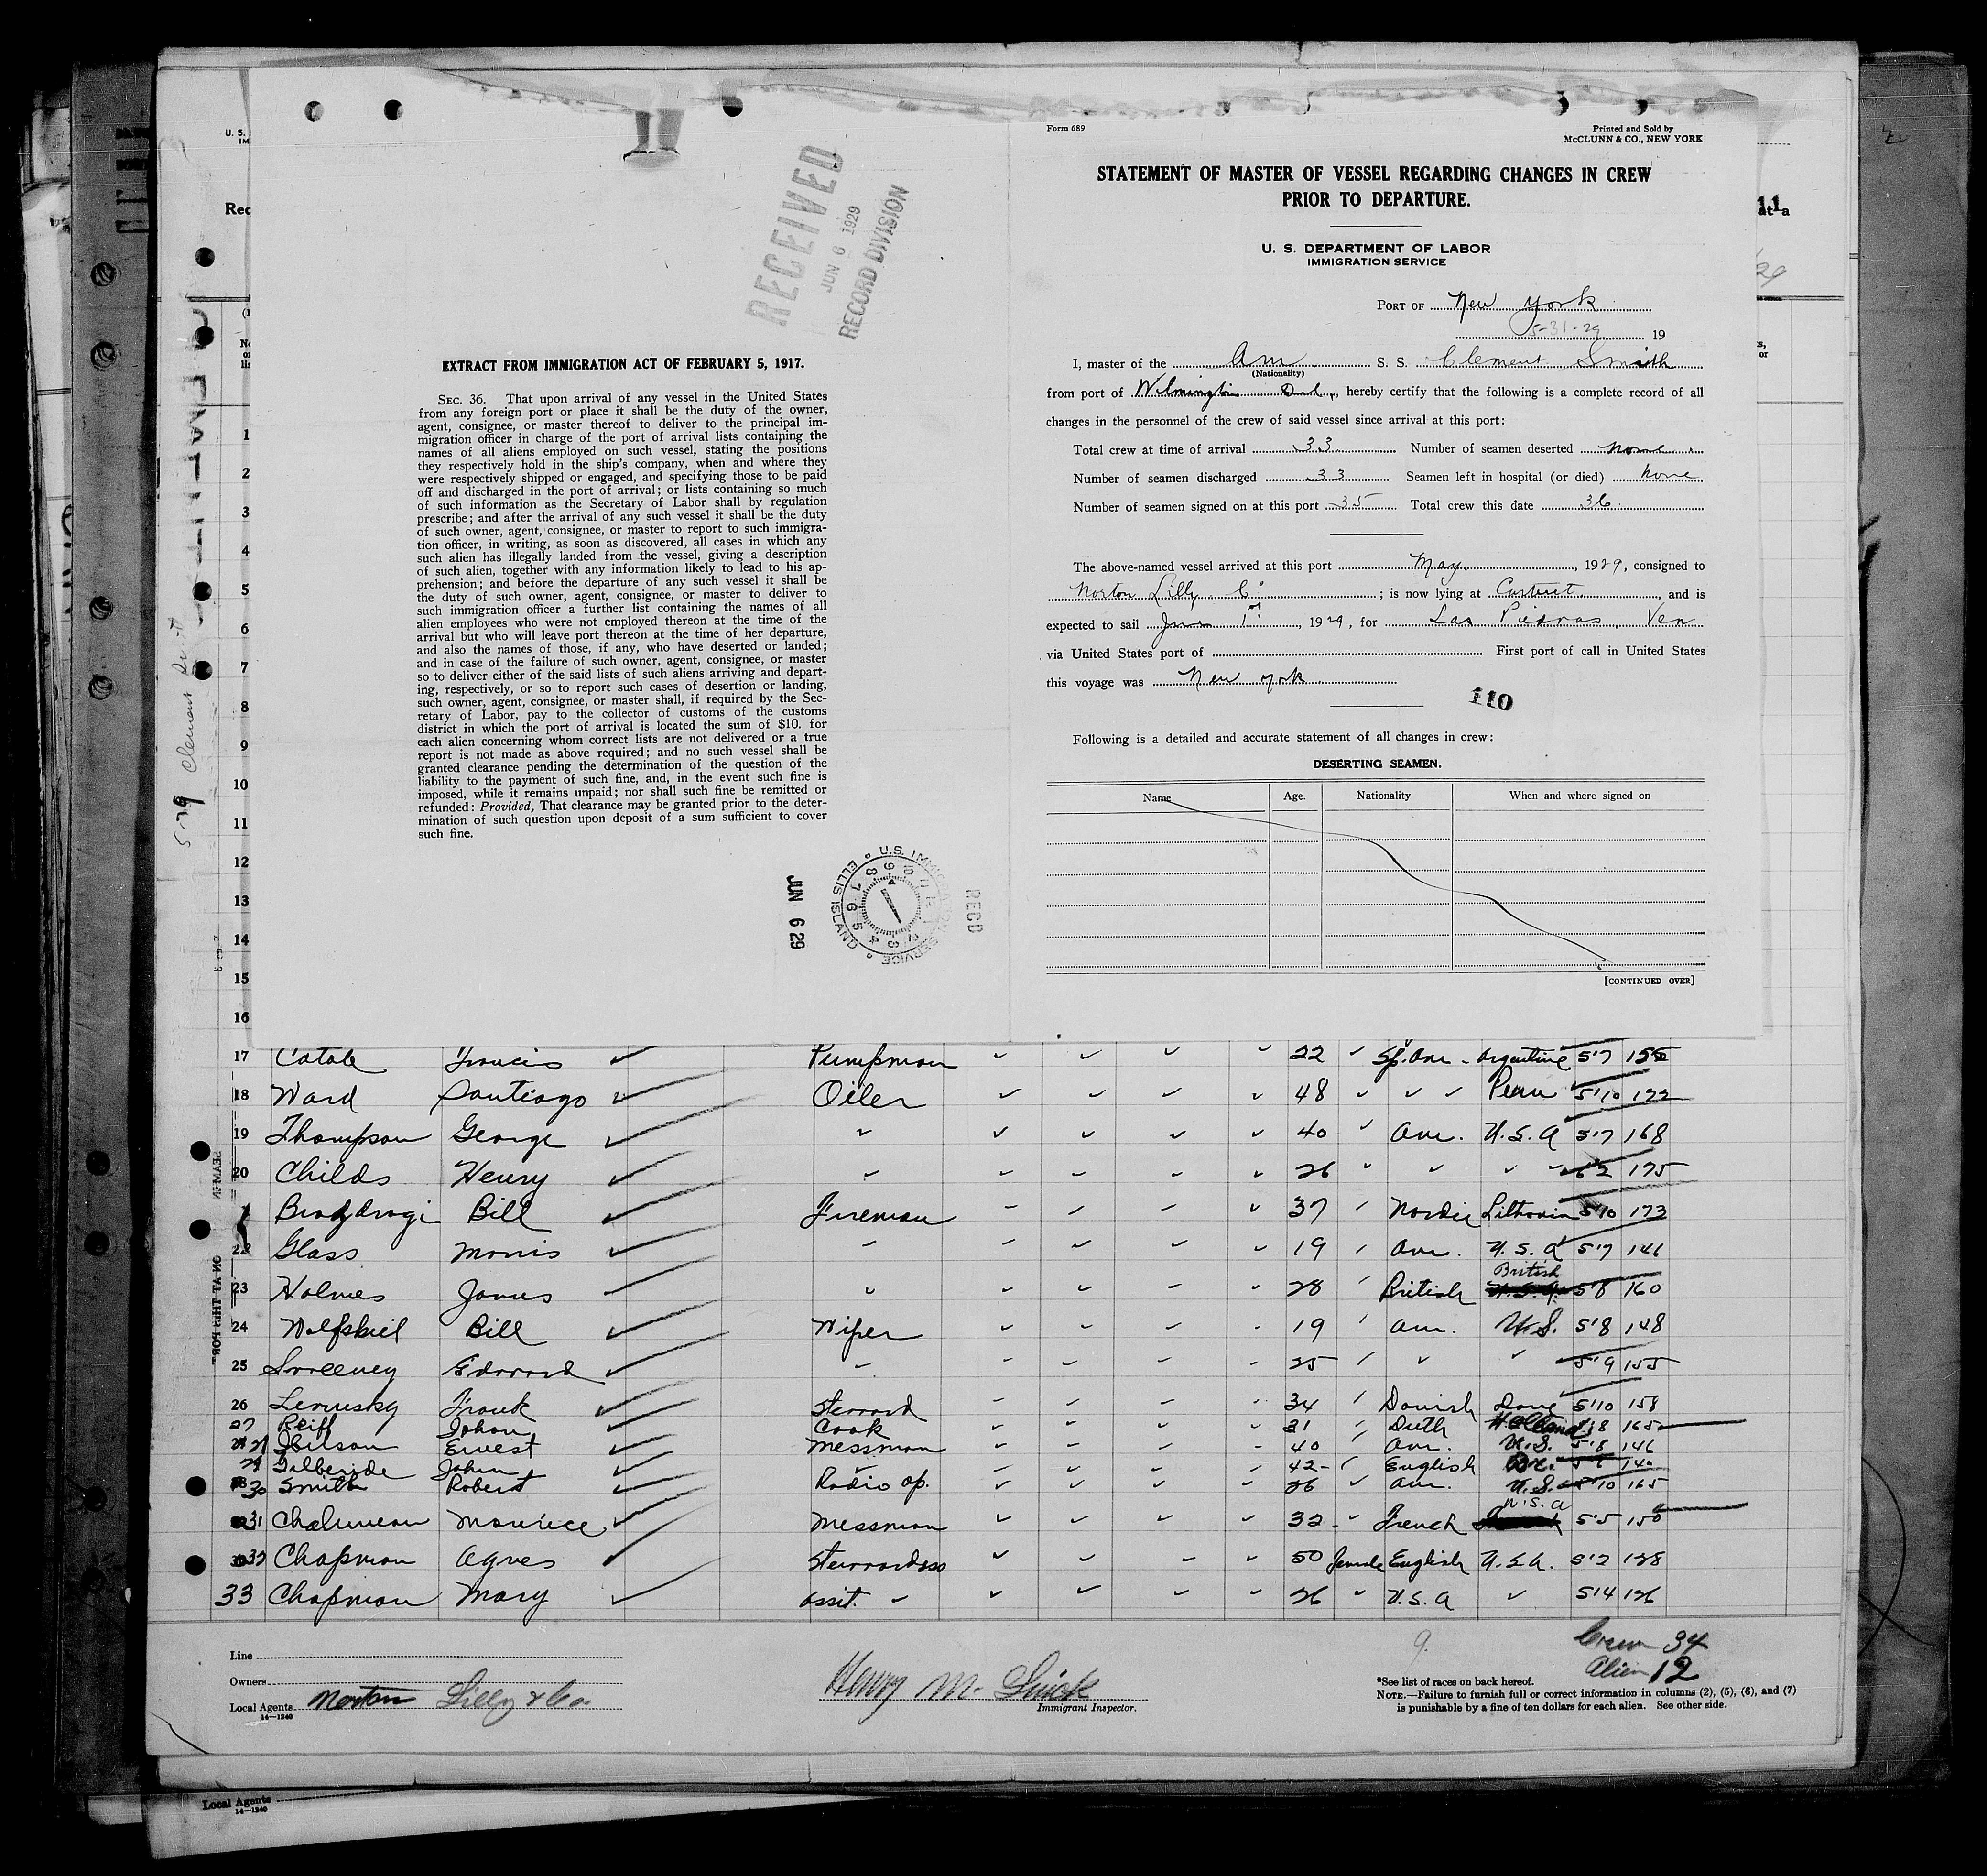 U. S.
IM
Rec
EXTRACT FROM IMMIGRATION ACT OF FEBRUARY 5, 1917.
SEC. 36. That upon arrival of any vessel in the United States
from any foreign port or place it shall be the duty of the owner,
agent, consignee, or master thereof to deliver to the principal im-
migration officer in charge of the port of arrival lists containing the
names of all aliens employed on such vessel, stating the positions
they respectively hold in the ship's company, when and where they
were respectively shipped or engaged, and specifying those to be paid
off and discharged in the port of arrival; or lists containing so much
of such information as the Secretary of Labor shall by regulation
prescribe; and after the arrival of any such vessel it shall be the duty
of such owner, agent, consignee, or master to report to such immigra-
tion officer, in writing, as soon as discovered, all cases in which any
such alien has illegally landed from the vessel, giving a description
of such alien, together with any information likely to lead to his ap-
prehension; and before the departure of any such vessel it shall be
the duty of such owner, agent, consignee, or master to deliver to
such immigration officer a further list containing the names of all
alien employees who were not employed thereon at the time of the
arrival but who will leave port thereon at the time of her departure,
and also the names of those, if any, who have deserted or landed;
and in case of the failure of such owner, agent, consignee, or master
so to deliver either of the said lists of such aliens arriving and depart-
ing, respectively, or so to report such cases of desertion or landing,
such owner, agent, consignee, or master shall, if required by the Sec-
retary of Labor, pay to the collector of customs of the customs
district in which the port of arrival is located the sum of $10. for
each alien concerning whom correct lists are not delivered or a true
report is not made as above required; and no such vessel shall be
granted clearance pending the determination of the question of the
liability to the payment of such fine, and, in the event such fine is
imposed, while it remains unpaid; nor shall such fine be remitted or
refunded: Provided, That clearance may be granted prior to the deter-
mination of such question upon deposit of a sum sufficient to cover
such fine.
RECEIVED
JUN 6 1929
RECORD DIVISION
JUN 6 29
U.S. IMMIGRATION SERVICE ELLIS ISLAND
REC'D
Form 689
Printed and Sold by
McCLUNN & CO., NEW YORK
STATEMENT OF MASTER OF VESSEL REGARDING CHANGES IN CREW
PRIOR TO DEPARTURE.
U. S. DEPARTMENT OF LABOR
IMMIGRATION SERVICE
PORT OF New York
5-31-29 19
I, master of the Am S. S. Clement Smith
(Nationality)
from port of Wilmington Del, hereby certify that the following is a complete record of all
changes in the personnel of the crew of said vessel since arrival at this port:
Total crew at time of arrival 33 Number of seamen deserted none
Number of seamen discharged 33 Seamen left in hospital (or died) none
Number of seamen signed on at this port 35 Total crew this date 36
The above-named vessel arrived at this port May, 1929, consigned to
Norton Lilly Co; is now lying at Carteret, and is
expected to sail June 1st, 1929, for Las Piedras, Ven
via United States port of First port of call in United States
this voyage was New York
110
Following is a detailed and accurate statement of all changes in crew:
DESERTING SEAMEN.
Name Age. Nationality When and where signed on
[CONTINUED OVER]
1
2
3
4
5
6
7
8
9
10
11
12
13
14
15
16
17 Catale Francis Pumpman 22 Sp. Am - Argentine 5'7 155
18 Ward Santiago Oiler 48 Peru 5'10 172
19 Thompson George 40 Am. U.S.A 5'7 168
20 Childs Henry 26 6'2 175
Bill Fireman 37 Nordic 5'10 173
22 Glass Morris 19 Am. U.S.A 5'7 146
23 Holmes James 28 British British 5'8 160
24 Bill Wiper 19 Am. U.S. 5'8 148
25 Sweeney Edward 25 5'9 155
26 Frank Steward 34 Danish Dane 5'10 158
27 Reiff Johan Cook 31 Duth Holland 165
Ernest Messman 40 Am. U.S. 5'8 146
29 John 42 English 140
30 Smith Robert Radio op. 26 Am. U.S. 5'10 165
31 Maurice Messman 32 French U.S.A 5'5 150
32 Chapman Agnes Stewardess 50 Female English U.S.A. 5'2 128
33 Chapman Mary asst. 26 U.S.A 5'4 126
Crew 34
Alien 12
Line
Owners
Local Agents Norton Lilly & Co.
14—1240
Henry M.
Immigrant Inspector.
*See list of races on back hereof.
NOTE.—Failure to furnish full or correct information in columns (2), (5), (6), and (7)
is punishable by a fine of ten dollars for each alien. See other side.
Local Agents
14—1240